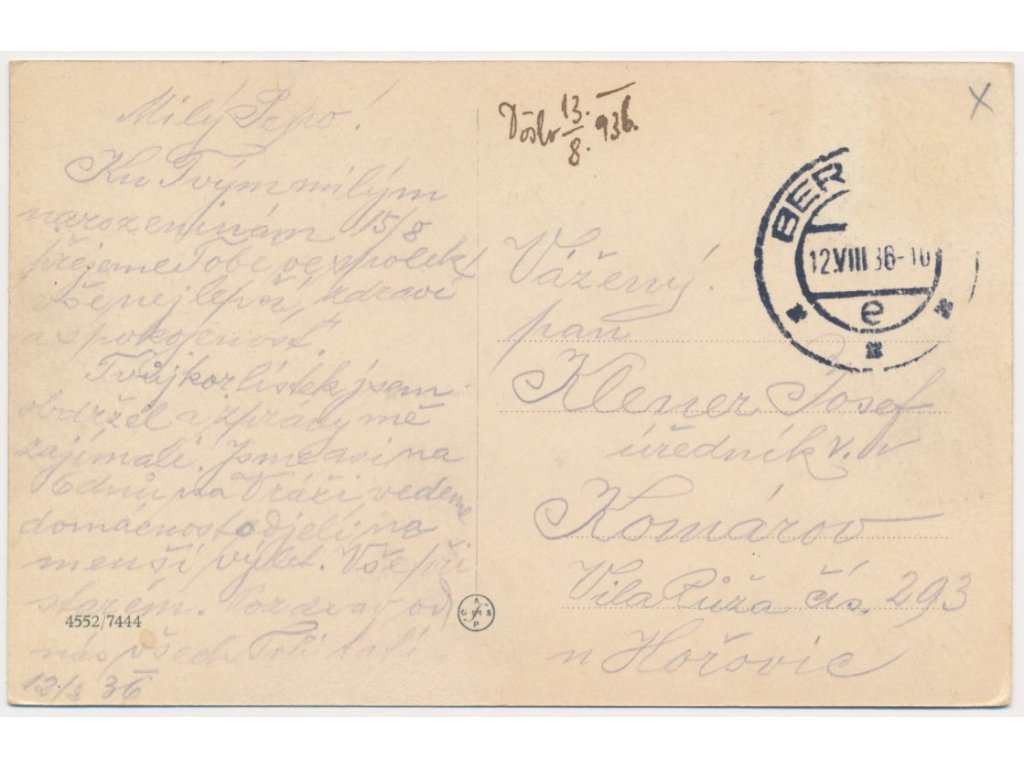 Milý Pepo!
Ku Tvým milým
narozeninám 15/8
přejeme Tobě ve spolek
vše nejlepší, zdraví
a spokojenost.
Tvůj kor. lístek jsem
obdržel a zprávy mě
zajímali. Jsme asi na
6 dnů na Vráži, vedeme
domácnost odjeli na
menší výlet. Vše při
starém. Pozdrav od
nás všech
12./8 36
4552/7444
Došlo 13./8. 936.
x
BER
12.VIII 36-10
e
Vážený
pan
Klener Josef
úředník v. v
Komárov
Vila Růža čís. 293
n Hořovic